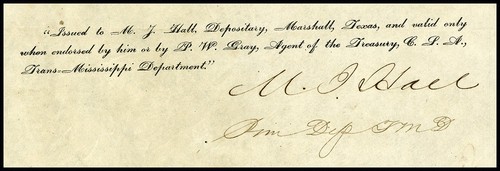 "Issued to M. J. Hall, Depositary, Marshall, Texas, and valid only
when endorsed by him or by P. W. Gray, Agent of the Treasury, C. S. A.,
Trans-Mississippi Department."
M. J. Hall
Dep T M D